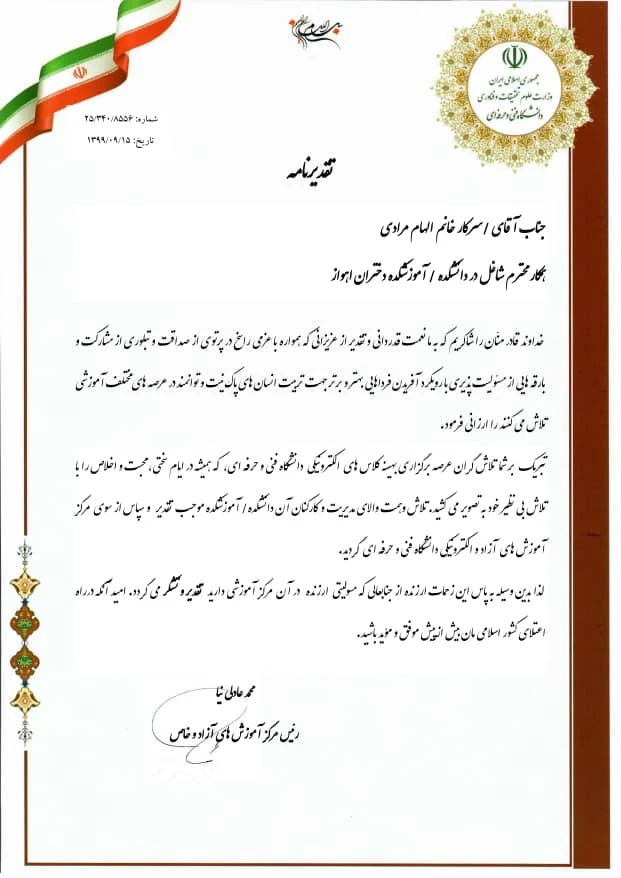 بسم الله الرحمن الرحیم
جمهوری اسلامی ایران
وزارت علوم تحقیقات و فناوری
دانشگاه فنی و حرفه ای
شماره: ۲۵/۳۴۰/۸۵۵۶
تاریخ: ۱۳۹۹/۰۹/۱۵
تقدیرنامه
جناب آقای / سرکار خانم الهام مرادی
همکار محترم شاغل در دانشکده / آموزشکده دختران اهواز
خداوند قادر منّان را شاکریم که به ما نعمت قدردانی و تقدیر از عزیزانی که همواره با عزمی راسخ در پرتوی از صداقت و تبلوری از مشارکت و
بارقه هایی از مسئولیت پذیری با رویکرد آفریدن فرداهایی بهتر و برتر جهت تربیت انسان های پاک نیت و توانمند در عرصه های مختلف آموزشی
تلاش می کنند را ارزانی فرمود.
تبریک بر شما تلاش گران عرصه برگزاری بهینه کلاس های الکترونیکی دانشگاه فنی و حرفه ای، که همیشه در ایام سختی، محبت و اخلاص را با
تلاش بی نظیر خود به تصویر می کشید. تلاش و همت والای مدیریت و کارکنان آن دانشکده/ آموزشکده موجب تقدیر و سپاس از سوی مرکز
آموزش های آزاد و الکترونیکی دانشگاه فنی و حرفه ای گردید.
لذا بدین وسیله به پاس این زحمات ارزنده از جنابعالی که مسولیتی ارزنده در آن مرکز آموزشی دارید تقدیر و تشکر می گردد. امید آنکه در راه
اعتلای کشور اسلامی مان بیش از پیش موفق و مؤید باشید.
محمد عادلی نیا
رئیس مرکز آموزش های آزاد و خاص